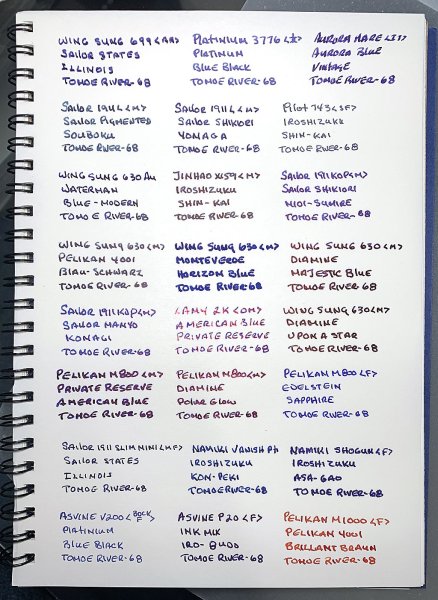 Wing Sung 699 <M>
Sailor States
Illinois
Tomoe River-68
Platinum 3776
Platinum
Blue Black
Tomoe River-68
Aurora Mare <IT>
Aurora Blue
Vintage
Tomoe River-68
Sailor 1911L <M>
Sailor Pigmented
Souboku
Tomoe River-68
Sailor 1911L <M>
Sailor Shikiori
Yonaga
Tomoe River-68
Pilot 743 <SF>
Iroshizuku
Shin-Kai
Tomoe River-68
Wing Sung 630
Waterman
Blue-Modern
Tomoe River-68
Jinhao X159 <M>
Iroshizuku
Shin-Kai
Tomoe River-68
Sailor 1911KOP <M>
Sailor Shikiori
Nioi-Sumire
Tomoe River-68
Wing Sung 630 <M>
Pelikan 4001
Blau-Schwarz
Tomoe River-68
Wing Sung 630 <M>
Monteverde
Horizon Blue
Tomoe River-68
Wing Sung 630 <M>
Diamine
Majestic Blue
Tomoe River-68
Sailor 1911KOP <M>
Sailor Manyo
Konagi
Tomoe River-68
Lamy 2K <OM>
American Blue
Private Reserve
Tomoe River-68
Wing Sung 630 <M>
Diamine
Upon a Star
Tomoe River-68
Pelikan M800 <M>
Private Reserve
American Blue
Tomoe River-68
Pelikan M800 <M>
Diamine
Polar Glow
Tomoe River-68
Pelikan M800 <F>
Edelstein
Sapphire
Tomoe River-68
Sailor 1911 Slim Mini <MF>
Sailor States
Illinois
Tomoe River-68
Namiki Vanish Pt
Iroshizuku
Kon-Peki
Tomoe River-68
Namiki Shogun <F>
Iroshizuku
Asa-Gao
Tomoe River-68
Asvine V200 <Bock F>
Platinum
Blue Black
Tomoe River-68
Asvine P20 <F>
Ink Mix
Iro-Buds
Tomoe River-68
Pelikan M1000 <F>
Pelikan 4001
Brillant Braun
Tomoe River-68